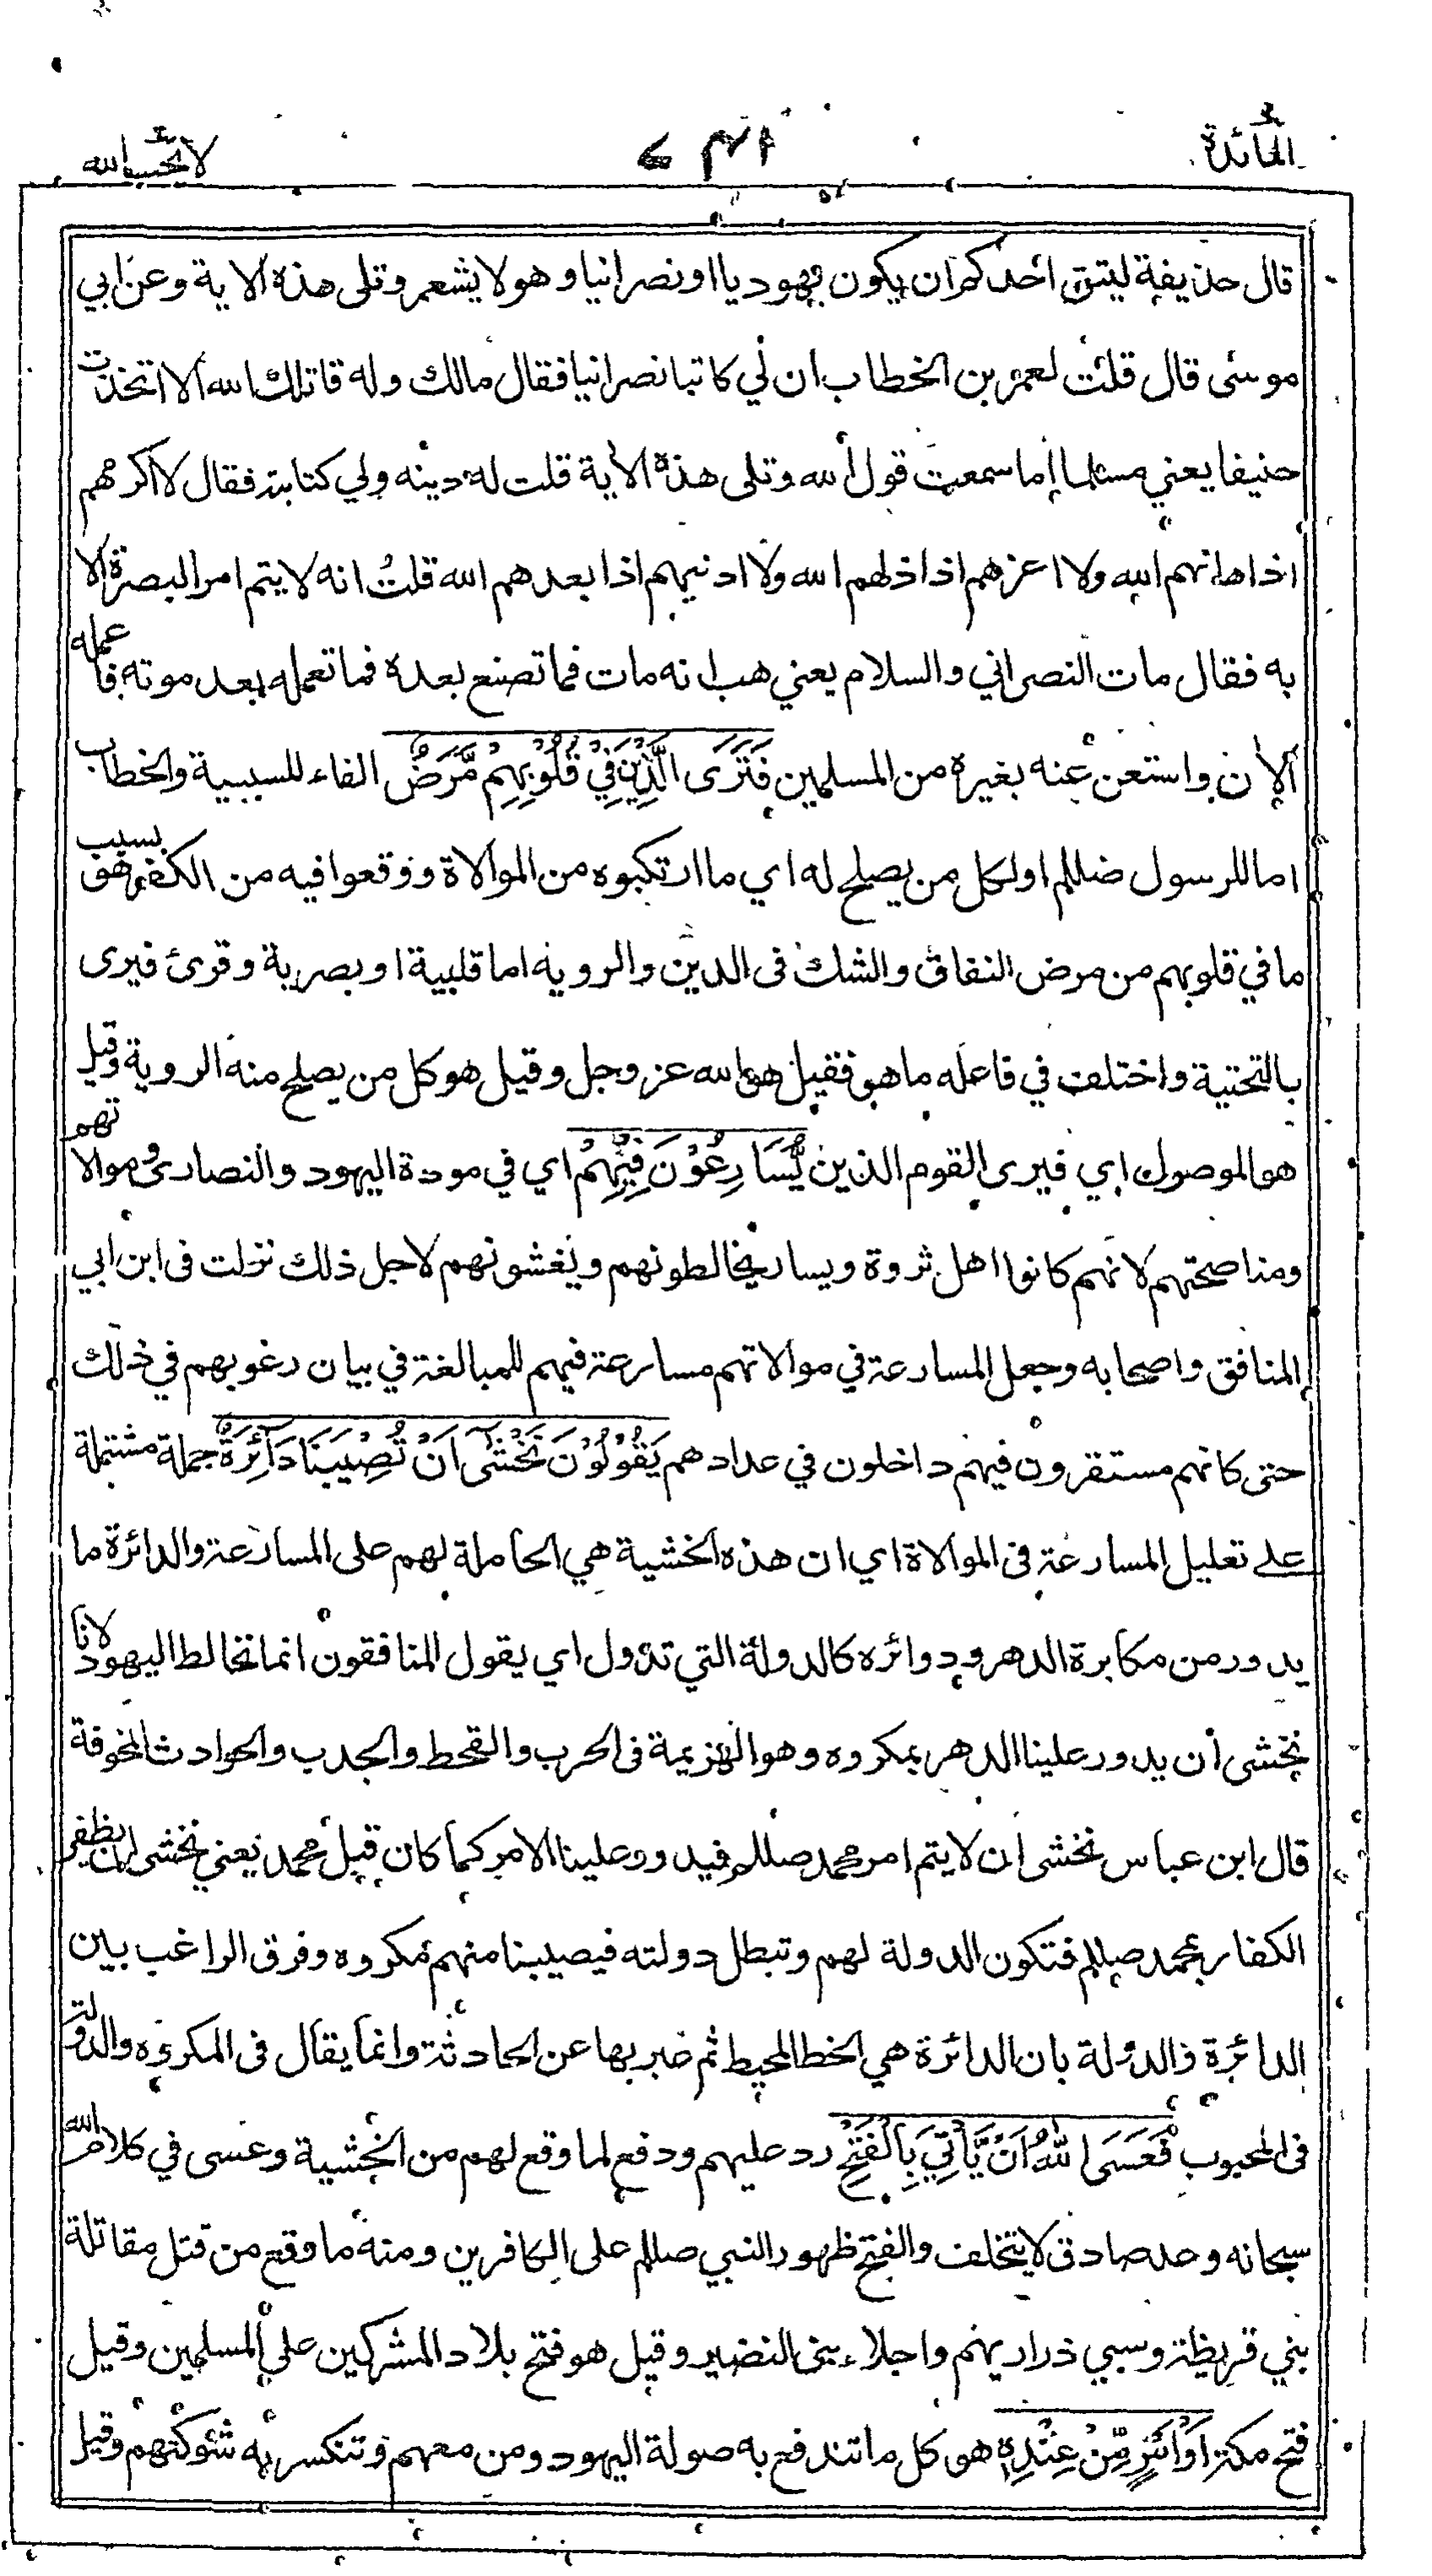 المائدة
لا يحب الله
قال حذيفة ليتق احدكم ان يكون يهوديا او نصرانيا وهو لا يشعر وتلى هذه الاية وعن ابي
موسى قال قلت لعمر بن الخطاب ان لي كاتبا نصرانيا فقال مالك وله قاتلك الله الا اتخذت
حنيفا يعني مسلما اما سمعت قول الله وتلى هذه الأية قلت له دينه ولي كتابته فقال لا اكرمهم
اذا اهانهم الله ولا اعزهم اذا اذلهم الله ولا ادنيهم اذا ابعدهم الله قلت انه لا يتم امر البصرة الا
به فقال مات النصراني والسلام يعني هب انه مات فما تصنع بعده فما تعمله بعد موته فاعمله
الأن واستعن عنه بغيره من المسلمين فَتَرَى الَّذِيْنَ فِيْ قُلُوْبِهِمْ مَّرَضٌ الفاء للسببية والخطاب
اما للرسول صللم او لكل من يصلح له اي ما ارتكبوه من الموالاة ووقعوا فيه من الكفر هو بسبب
ما في قلوبهم من مرض النفاق والشك فى الدين والروية اما قلبية او بصرية وقرئ فيرى
بالتحتية واختلف في فاعله ما هو فقيل هو الله عز وجل وقيل هو كل من يصلح منه الروية وقيل
هو الموصول اي فيرى القوم الذين يُّسَارِعُوْنَ فِيْهِمْ اي في مودة اليهود والنصارى وموالاتهم
ومناصحتهم لانهم كانوا اهل ثروة ويسار يخالطونهم ويغشونهم لاجل ذلك نزلت فى ابن ابي
المنافق واصحابه وجعل المسارعة في موالاتهم مسارعة فيهم للمبالغة في بيان رغوبهم في ذلك
حتى كانهم مستقرون فيهم داخلون في عدادهم يَقُوْلُوْنَ نَخْشٰٓى اَنْ تُصِيْبَنَا دَآئِرَةٌ جملة مشتملة
على تعليل المسارعة فى الموالاة اي ان هذه الخشية هي الحاملة لهم على المسارعة والدائرة ما
يدور من مكابرة الدهر ودوائره كالدولة التي تدول اي يقول المنافقون انما نخالط اليهود لانا
نخشى أن يدور علينا الدهر بمكروه وهو الهزيمة فى الحرب والقحط والجدب والحوادث المخوفة
قال ابن عباس نخشى ان لا يتم امر محمد صللم فيدور علينا الامر كما كان قبل محمد يعني نخشى ان يظفر
الكفار بمحمد صللم فتكون الدولة لهم وتبطل دولته فيصيبنا منهم مكروه وفرق الراغب بين
الدائرة والدولة بان الدائرة هي الخط المحيط ثم عبر بها عن الحادثة وانما يقال فى المكروه والدولة
فى المحبوب فَعَسَى اللّٰهُ اَنْ يَّأْتِيَ بِالْفَتْحِ رد عليهم ودفع لما وقع لهم من الخشية وعسى في كلام الله
سبحانه وعد صادق لا يتخلف والفتح ظهور النبي صللم على الكافرين ومنه ما وقع من قتل مقاتلة
بني قريظة وسبي ذراريهم واجلاء بنى النضير وقيل هو فتح بلاد المشركين على المسلمين وقيل
فتح مكة اَوْ اَمْرٍ مِّنْ عِنْدِهٖ هو كل ما تندفع به صولة اليهود ومن معهم وتنكسر به شوكتهم وقيل